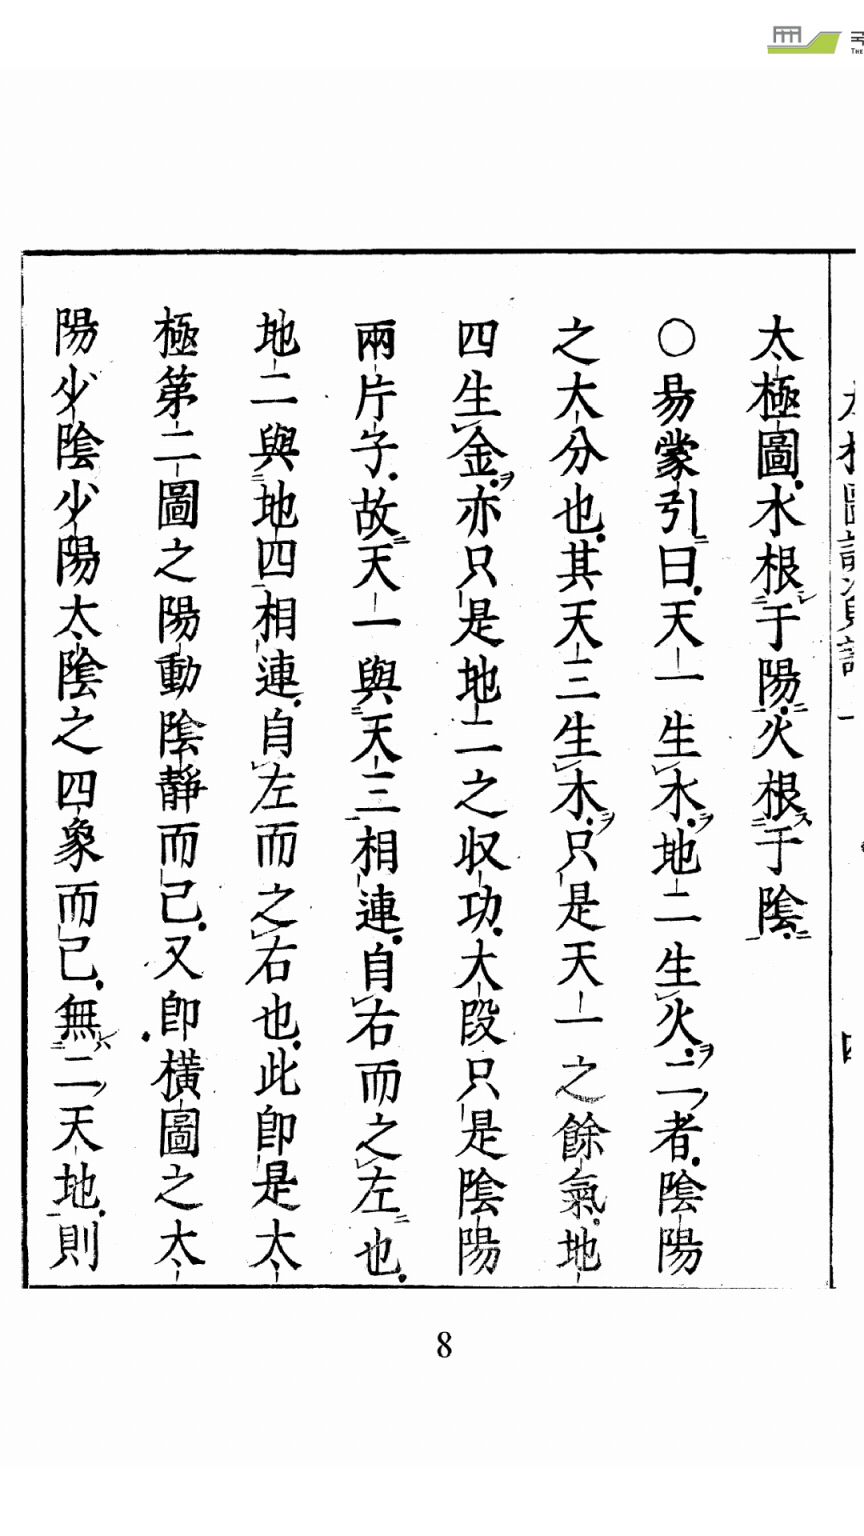 太極圖水根于陽火根于陰
○易蒙引曰天一生水地二生火二者陰陽
之大分也其天三生木只是天一之餘氣地
四生金亦只是地二之収功大段只是陰陽
兩片子故天一與天三相連自右而之左也
地二與地四相連自左而之右也此即是太
極第二圖之陽動陰靜而已又即橫圖之太
陽少陰少陽太陰之四象而已無二天地則
8